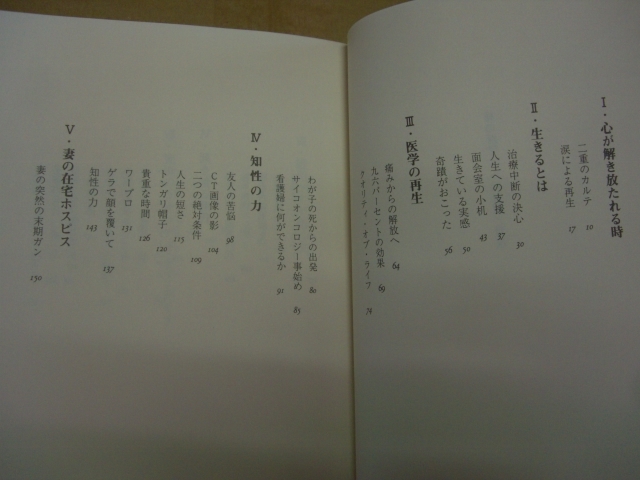 Ⅰ・心が解き放たれる時
二重のカルテ 10
涙による再生 17
Ⅱ・生きるとは
治療中断の決心 30
人生への支援 37
面会室の小机 43
生きている実感 50
奇蹟がおこった 56
Ⅲ・医学の再生
痛みからの解放へ 64
九六パーセントの効果 69
クオリティ・オブ・ライフ 74
わが子の死からの出発 80
サイコオンコロジー事始め 83
看護婦に何ができるか 91
Ⅳ・知性の力
友人の苦悩 98
CT画像の影 104
二つの絶対条件 109
人生の短さ 113
トンガリ帽子 120
貴重な時間 126
ワープロ 131
ゲラで顔を覆いて 137
知性の力 143
Ⅴ・妻の在宅ホスピス
妻の突然の末期ガン 150